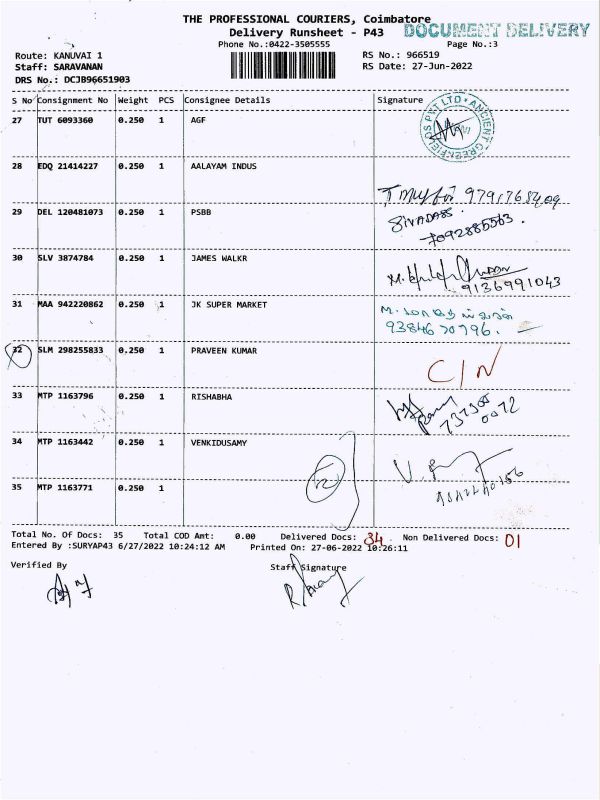 THE PROFESSIONAL COURIERS, Coimbatore
Delivery Runsheet - P43
DOCUMENT DELIVERY
Phone No.:0422-3505555
Page No.:3
Route: KANUVAI 1
RS No.: 966519
Staff: SARAVANAN
RS Date: 27-Jun-2022
DRS No.: DCJB96651903
S No Consignment No Weight PCS Consignee Details Signature
27 TUT 6093360 0.250 1 AGF
ANCIENT GREENFIELDS PVT LTD
28 EDQ 21414227 0.250 1 AALAYAM INDUS
29 DEL 120481073 0.250 1 PSBB
SIVADASS.
7092885563.
30 SLV 3874784 0.250 1 JAMES WALKR
9136991043
31 MAA 942220862 0.250 1 JK SUPER MARKET
32 SLM 298255833 0.250 1 PRAVEEN KUMAR
C/N
33 MTP 1163796 0.250 1 RISHABHA
34 MTP 1163442 0.250 1 VENKIDUSAMY
35 MTP 1163771 0.250 1
Total No. Of Docs: 35 Total COD Amt: 0.00 Delivered Docs: 34 Non Delivered Docs: 01
Entered By :SURYAP43 6/27/2022 10:24:12 AM Printed On: 27-06-2022 10:26:11
Verified By Staff Signature